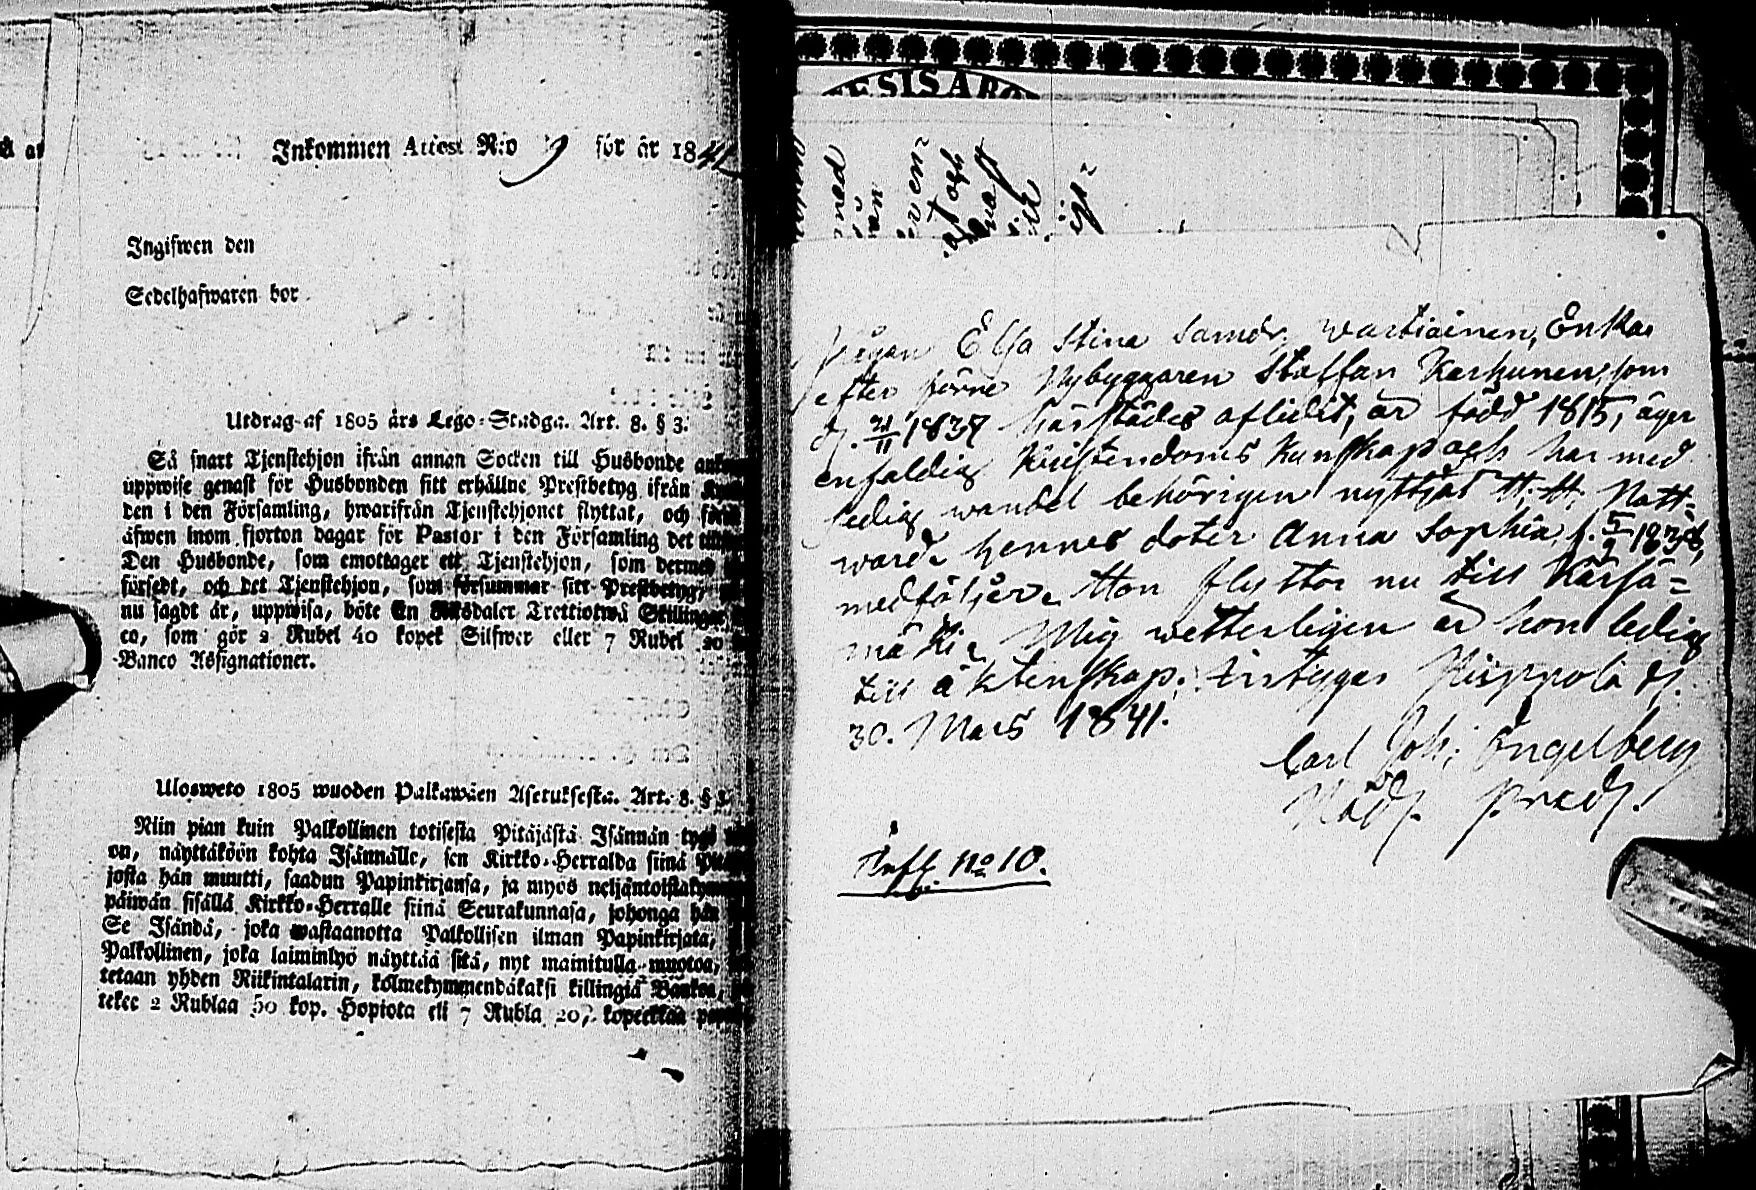 Inkommen Attest N:o 9 för år 1841
Ingifwen den
Sedelhafwaren bor
Utdrag af 1805 års Lego-Stadga. Art. 8. § 3.
Så snart Tjenstehjon ifrån annan Socken till Husbonde
uppwise genast för Husbonden sitt erhållne Prestbetyg ifrån
den i den Församling, hwarifrån Tjenstehjonet flyttat, och
äfwen inom fjorton dagar för Pastor i den Församling det
Den Husbonde, som emottager ett Tjenstehjon, som dermed
försedt, och det Tjenstehjon, som försummar sitt Prestbetyg,
nu sagdt är, uppwisa, böte En Riksdaler Trettiotwå Skillingar
co, som gör 2 Rubel 40 kopek Silfwer eller 7 Rubel 20
Banco Assignationer.
Ulosweto 1805 wuoden Palkawäen Asetuksesta. Art. 8. § 3.
Niin pian kuin Palkollinen toisesta Pitäjästä Isännän tygö
on, näyttäköön kohta Isännälle, sen Kirkko-Herralda siinä
josta hän muutti, saadun Papinkirjansa, ja myös neljäntoista
päiwän sisällä Kirkko-Herralle siinä Seurakunnasa, johonga hän
Se Isändä, joka wastaanotta Palkollisen ilman Papinkirjata,
Palkollinen, joka laiminlyö näyttää sitä, nyt mainitulla muotoa,
tetaan yhden Riikintalarin, kolmekymmendäkaksi killingiä Bankoa,
tekee 2 Rublaa 50 kop. Hopiota eli 7 Rubla 20 kopeekkaa
ESIS A RO
Pigan Elsa Stina Samdr. Wartiainen, Enka
efter förne Nybyggaren Staffan Karhunen, som
d. 21/11 1837 härstädes aflidit, är född 1815, äger
enfaldig Kristendoms Kunskap och har med
ledig wandel behörigen nyttjat H. H. Natt-
ward. hennes doter Anna Sophia f. 5/9 1838,
medföljer. Hon flyttar nu till Kärsä-
mäki. Mig wetterligen är hon ledig
till äktenskap. Intygas Pisppola d.
30. Mars 1841.
Carl Joh: Engelberg
Nåds. pred.
Infl. No 10.